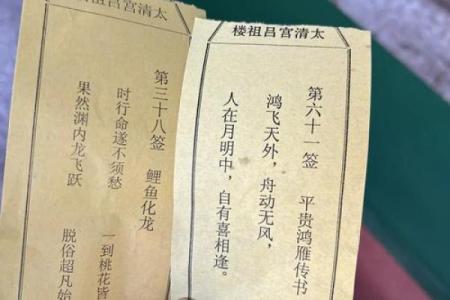 太清宫吕祖楼
第三十八签 鲤鱼化龙
时行命遂不须愁
一到桃花皆
果然渊内龙飞跃
脱俗超凡始
太清宫吕祖楼
第六十一签 平贵鸿雁传书
鸿飞天外，舟动无风，
人在月明中，自有喜相逢。